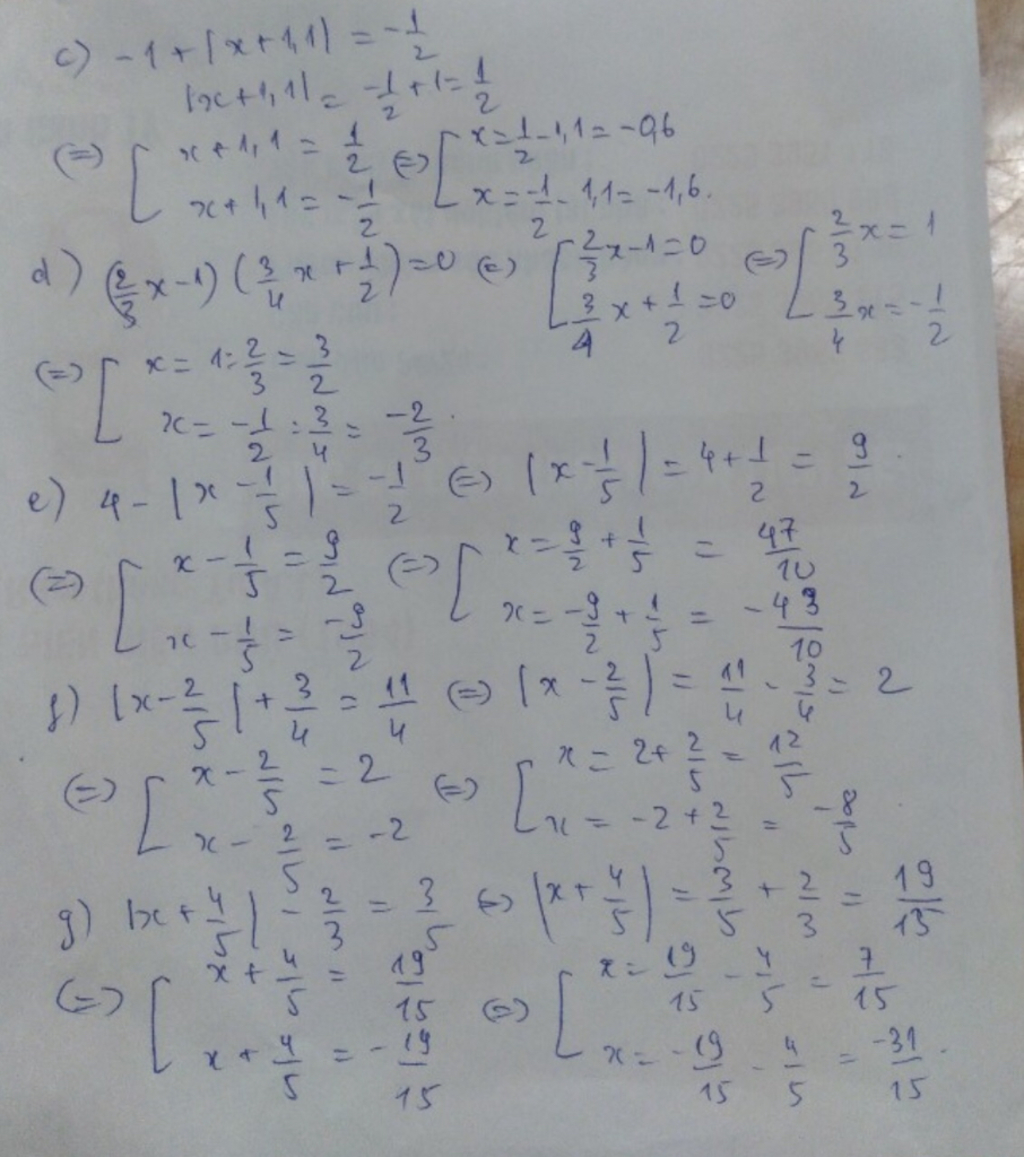 c) -1 + |x + 1,1| = -1/2
|x + 1,1| = -1/2 + 1 = 1/2
(=) [ x + 1,1 = 1/2 (=) [ x = 1/2 - 1,1 = -0,6
x + 1,1 = -1/2 x = -1/2 - 1,1 = -1,6.
d) (2/3 x - 1) (3/4 x + 1/2) = 0 (=) [ 2/3 x - 1 = 0 (=) [ 2/3 x = 1
3/4 x + 1/2 = 0 3/4 x = -1/2
(=) [ x = 1 : 2/3 = 3/2
x = -1/2 : 3/4 = -2/3.
e) 4 - |x - 1/5| = -1/2 (=) |x - 1/5| = 4 + 1/2 = 9/2.
(=) [ x - 1/5 = 9/2 (=) [ x = 9/2 + 1/5 = 47/10
x - 1/5 = -9/2 x = -9/2 + 1/5 = -43/10
f) |x - 2/5| + 3/4 = 11/4 (=) |x - 2/5| = 11/4 - 3/4 = 2
(=) [ x - 2/5 = 2 (=) [ x = 2 + 2/5 = 12/5
x - 2/5 = -2 x = -2 + 2/5 = -8/5
g) |x + 4/5| - 2/3 = 3/5 (=) |x + 4/5| = 3/5 + 2/3 = 19/15
(=) [ x + 4/5 = 19/15 (=) [ x = 19/15 - 4/5 = 7/15
x + 4/5 = -19/15 x = -19/15 - 4/5 = -31/15.